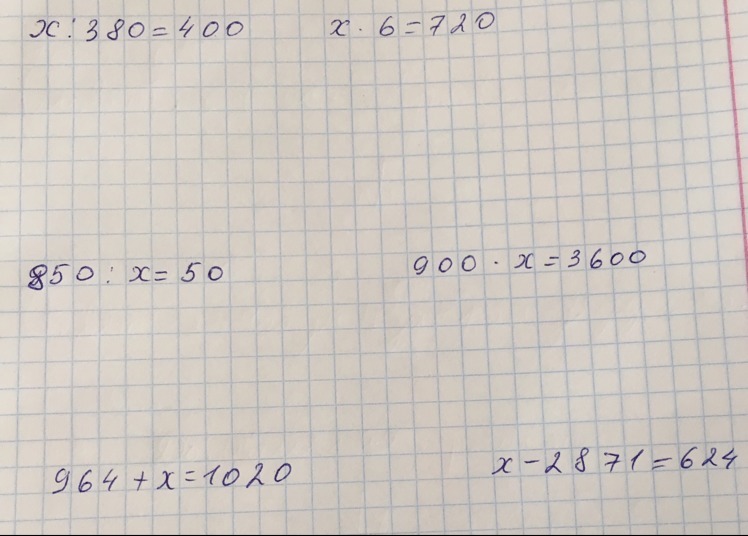 x : 380 = 400
x · 6 = 720
850 : x = 50
900 · x = 3600
964 + x = 1020
x - 2871 = 624